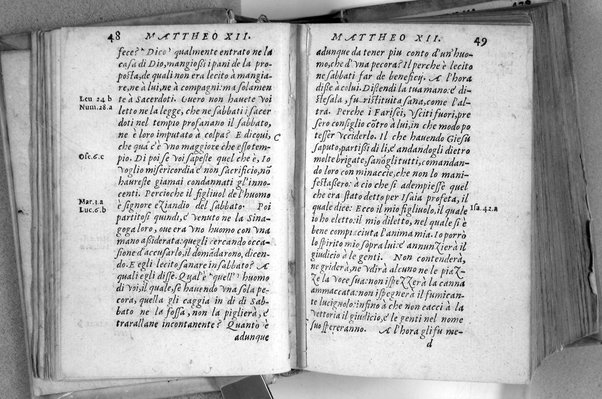 48 MATTHEO XII.
fece? Dico qualmente entrato ne la
casa di Dio, mangiossi i pani de la pro-
posta, de quali non era lecito à mangia-
re, ne à lui, ne à compagni: ma solamen-
te à Sacerdoti. Ouero non hauete voi
letto ne la legge, che ne sabbati i sacer
doti nel tempio profanano il sabbato,
ne è loro imputato à colpa? E dicoui,
che qua c'è vno maggiore che esso tem-
pio. Di poi se voi sapeste quel che è, Io
voglio misericordia e non sacrificio, nō
haureste giamai condannati gl'inno-
centi. Percioche il figliuol de l'huomo
è signore eziandio del sabbato. Poi
partitosi quindi, è venuto ne la Sina-
goga loro, oue era vno huomo con vna
mano assiderata: quegli cercando occa-
sione d'accusarlo, il domādarono, dicen-
do. E egli lecito sanare in sabbato? A
quali egli disse. Qual è quell' huomo
di voi, il quale, se hauendo vna sola pe-
cora, quella gli caggia in dì di Sab-
bato ne la fossa, non la piglierà, e
trarallane incontanente? Quanto è
adunque
Leu 24.b
Num.28.a
Ose.6.c
Mar.3.a
Luc.6.b
MATTHEO XII. 49
adunque da tener piu conto d'un'huo-
mo, che d'vna pecora? Il perche è lecito
ne sabbati far de beneficij. A l'hora
disse à colui. Distendi la tua mano: e di-
stesala, fu ristituita sana, come l'al-
tra. Perche i Farisei, vsciti fuori, pre
sero consiglio cōtro à lui, in che modo po
tesser vcciderlo. Il che hauendo Giesù
saputo, partissi di lì, e andandogli dietro
molte brigate, sanogli tutti, comandan-
do loro con minaccie, che non lo mani-
festassero: à cio che si adempiesse quel
che era stato detto per Isaia profeta, il
quale dice: Ecco il mio figliuolo, il quale
io ho eletto: il mio diletto, nel quale si è
bene compiaciuta l'anima mia. Io porrò
lo spirito mio sopra lui: e annunzierà il
giudicio à le genti. Non contenderà,
ne griderà, ne vdirà alcuno ne le piaz-
ze la voce sua: non ispezzerà la canna
ammaccata: non ispegnerà il fumican-
te lucignolo: infino à che non cacci à la
vettoria il giudicio, e le genti nel nome
suo spereranno. A l'hora gli fu me-
d
Isa. 42.a